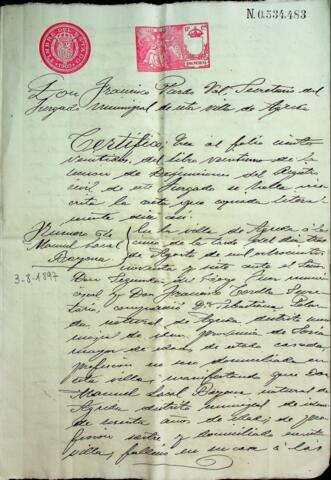 N. 0.534.483
TIMBRE DEL ESTADO
1907
Don Francisco Pardo Val, Secretario del
Juzgado municipal de esta villa de Agreda
Certifico: Que al folio ciento
veintidos, del libro veintiuno de la
sección de Defunciones del Registro
civil de este Juzgado se halla ins-
crita la acta que copiada literal-
mente dice así:
Numero 61
Manuel Lacal
Bayona
En la villa de Agreda á las
cinco de la tarde del dia tres
de Agosto de mil ochocientos
noventa y siete ante el Señor
3-8-1897
Don Segundo del Juez muni-
cipal y Don Francisco Secre-
tario, compareció Dª
natural de Agreda distrito mu-
nicipal de idem, provincia de Soria
mayor de edad, de estado casada
profesion su sexo domiciliada en
esta villa, manifestando que Don
Manuel Lacal Bayona natural de
Agreda distrito municipal de idem
de años de edad, de pro-
fesion sastre y domiciliado en esta
villa, falleció en su casa á las